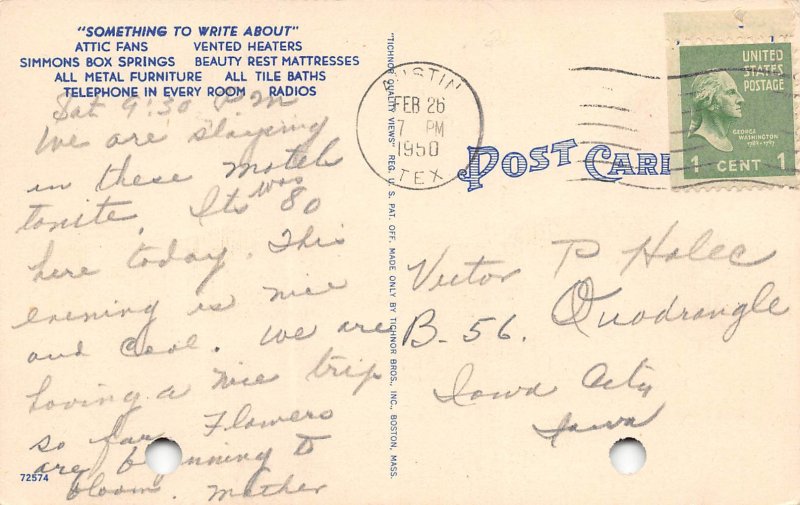 "SOMETHING TO WRITE ABOUT"
ATTIC FANS VENTED HEATERS
SIMMONS BOX SPRINGS BEAUTY REST MATTRESSES
ALL METAL FURNITURE ALL TILE BATHS
TELEPHONE IN EVERY ROOM RADIOS
Sat 9:30 P.M
We are staying
in these motels
tonite, Its was 80
here today. This
evening is nice
and cool. We are
having a nice trip
so far Flowers
are beginning to
bloom. Mother
72574
"TICHNOR QUALITY VIEWS" REG. U. S. PAT. OFF. MADE ONLY BY TICHNOR BROS., INC., BOSTON, MASS.
AUSTIN
FEB 26
7 PM
1950
TEX
POST CARD
UNITED
STATES
POSTAGE
GEORGE
WASHINGTON
1789-1797
1 CENT 1
Victor P Halec
B-56. Quadrangle
Iowa City
Iowa